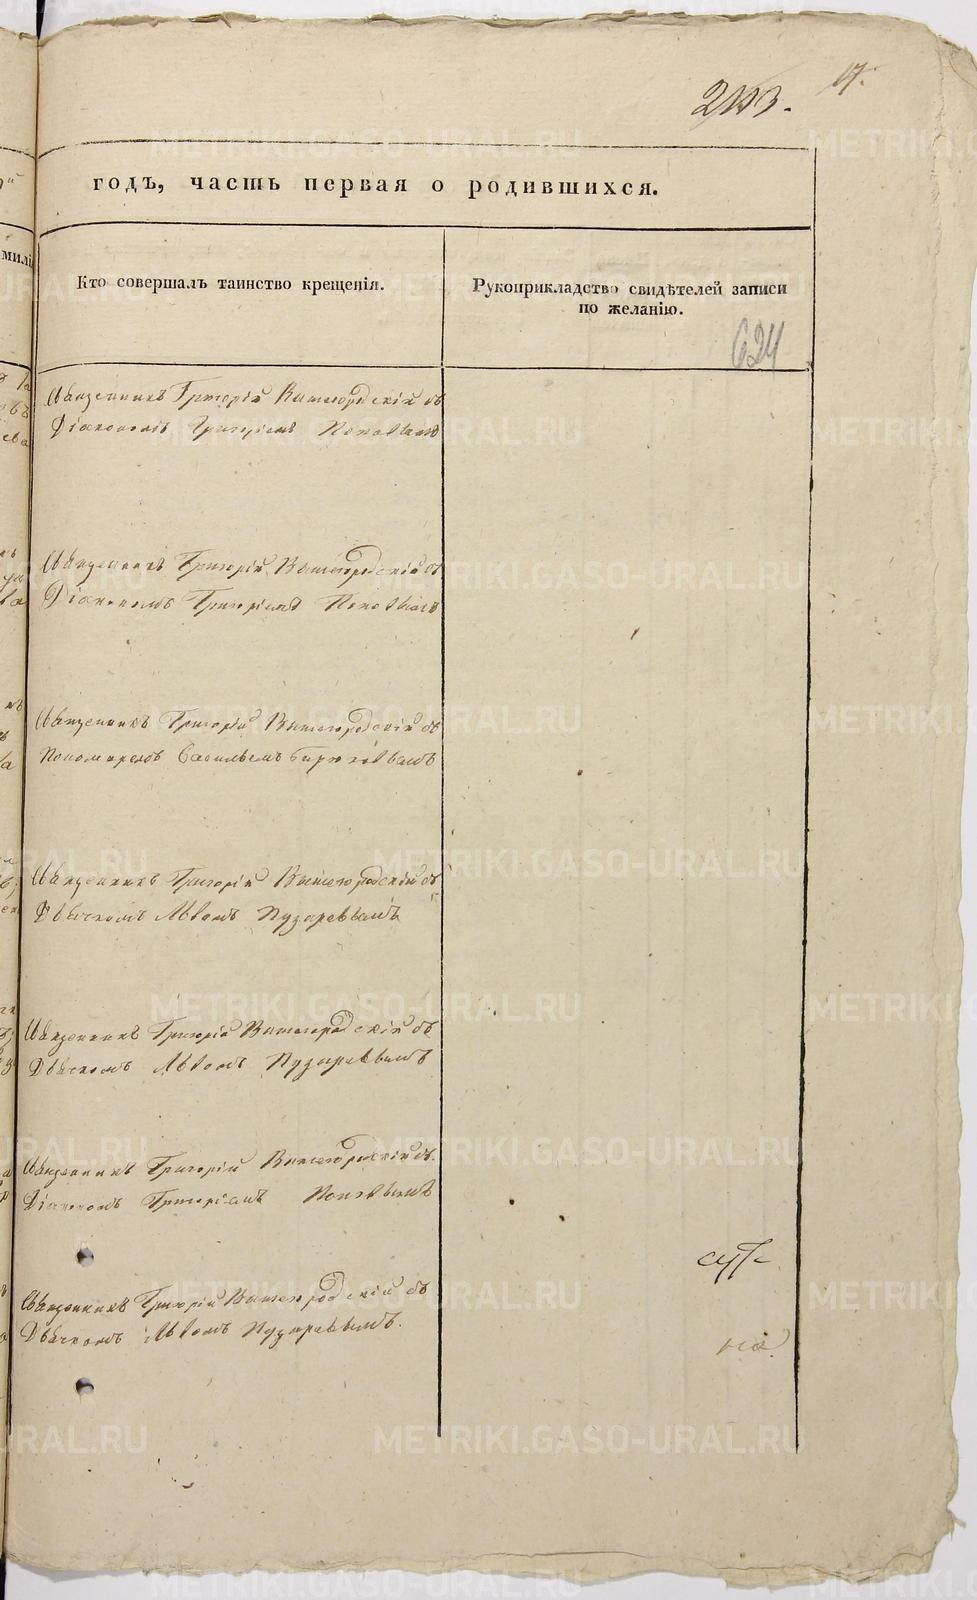 17.
годъ, часть первая о родившихся.
Кто совершалъ таинство крещенія.
Рукоприкладство свидѣтелей записи
по желанію.
624
Священникъ Григорій Вышегородскій съ
Діакономъ Григоріемъ Поповымъ
Священникъ Григорій Вышегородскій съ
Діакономъ Григоріемъ Поповымъ
Священникъ Григорій Вышегородскій съ
Пономаремъ Васильемъ Бирюковымъ
Священникъ Григорій Вышегородскій съ
Дьячкомъ Львомъ Пузыревымъ
Священникъ Григорій Вышегородскій съ
Дьячкомъ Львомъ Пузыревымъ
Священникъ Григорій Вышегородскій съ
Діакономъ Григоріемъ Поповымъ
Священникъ Григорій Вышегородскій съ
Дьячкомъ Львомъ Пузыревымъ.
METRIKI.GASO-URAL.RU